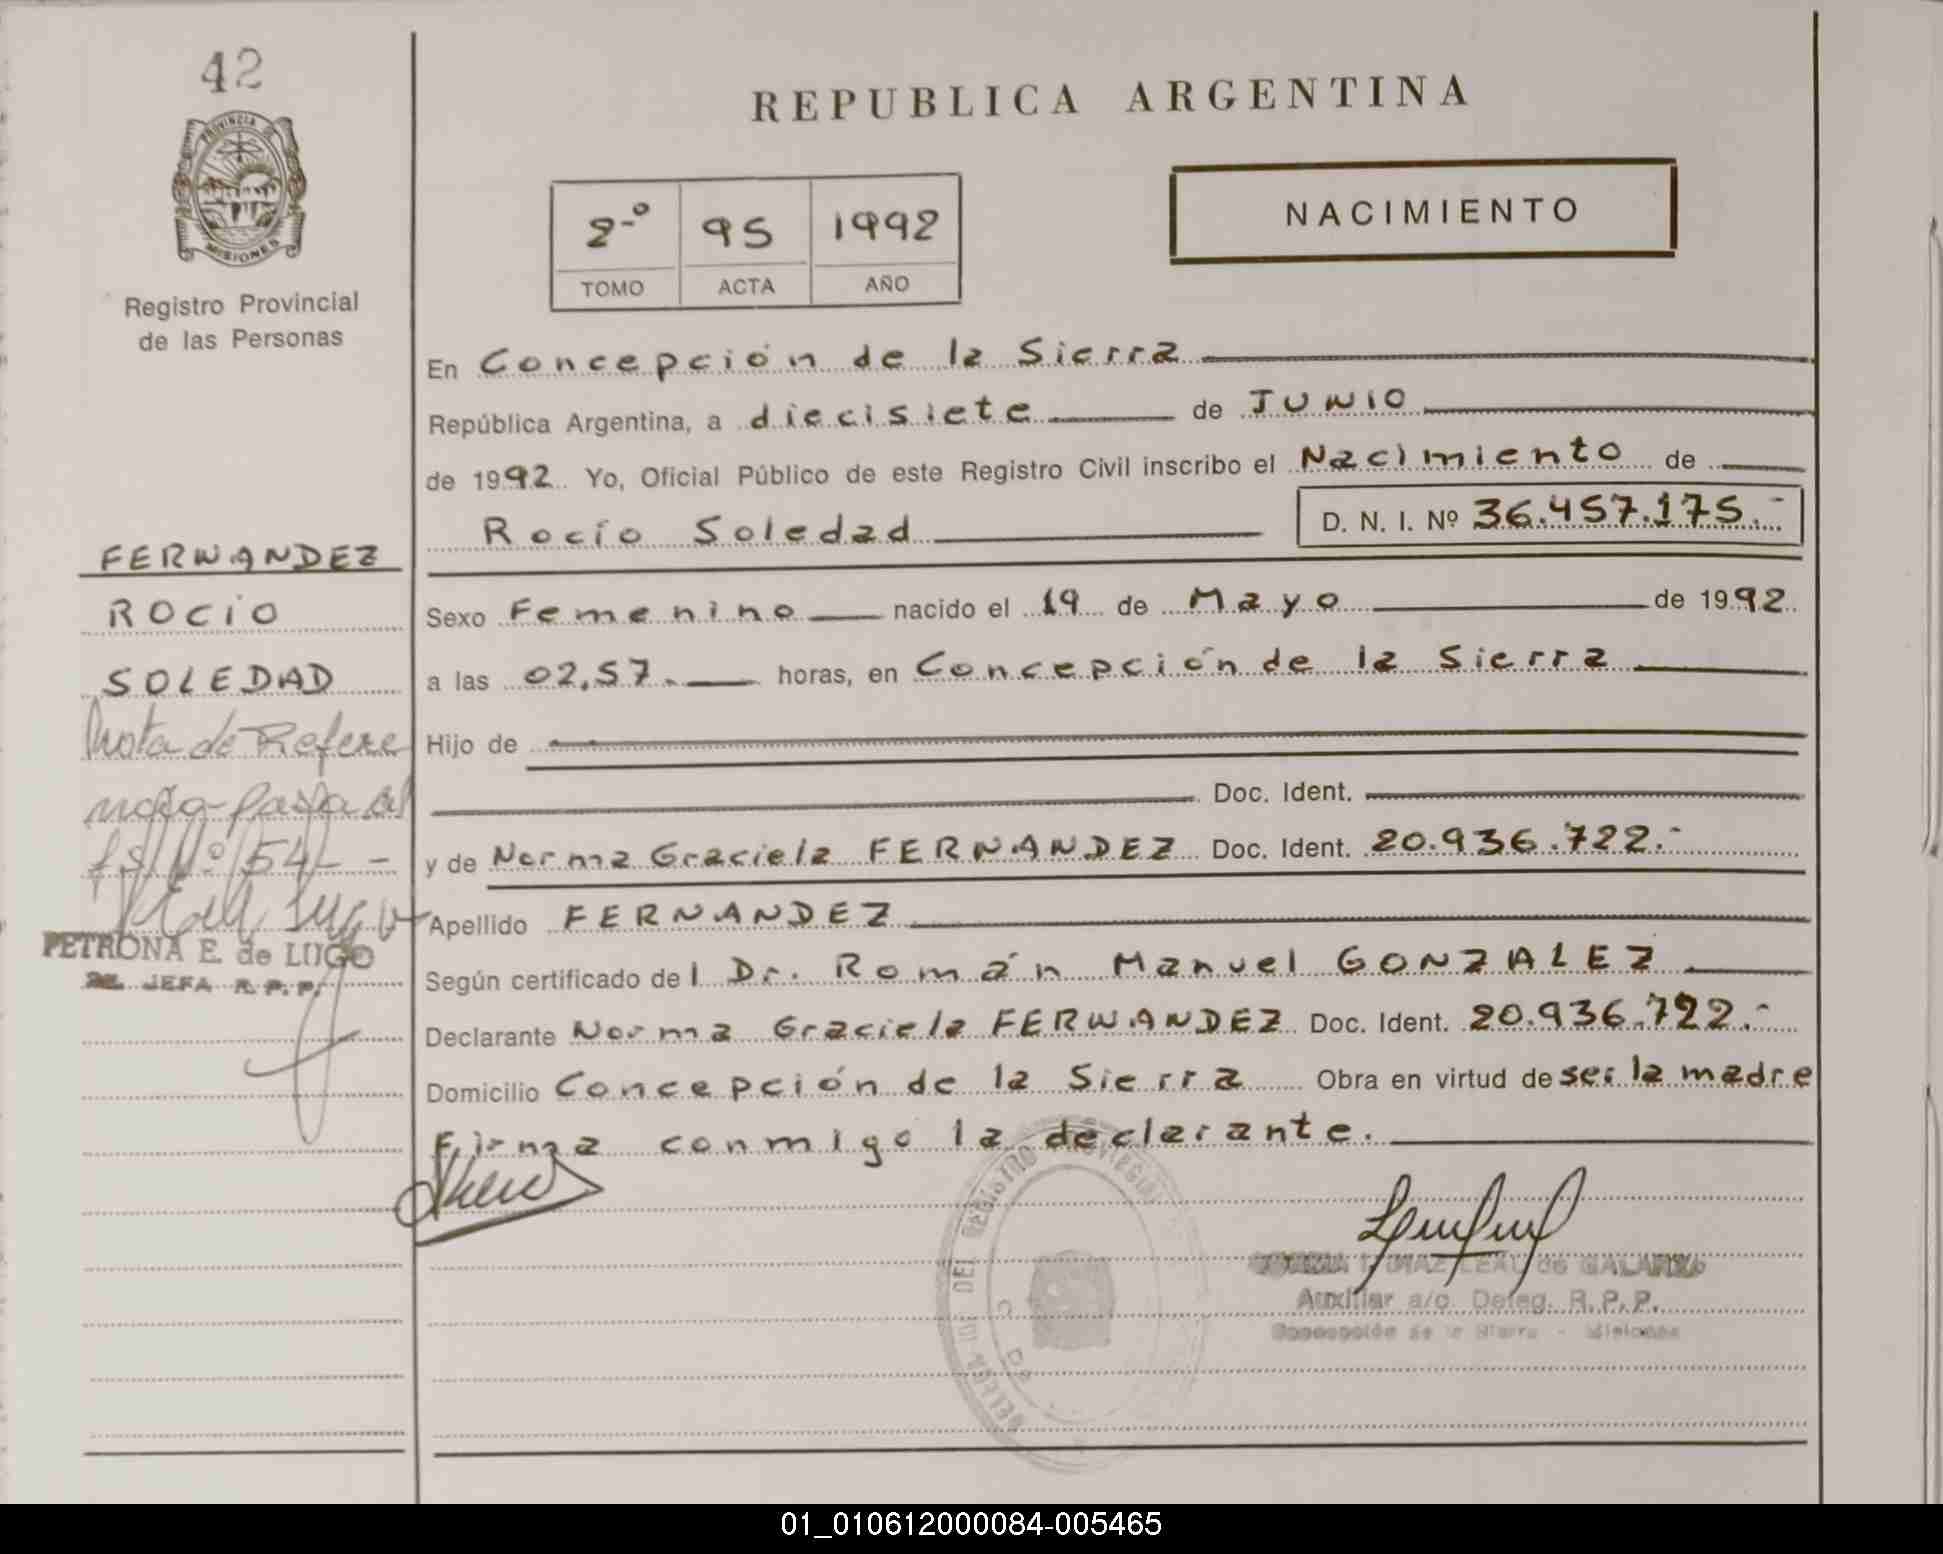 42
PROVINCIA DE
MISIONES
Registro Provincial
de las Personas
FERNANDEZ
ROCIO
SOLEDAD
Nota de Refere
PETRONA E. de LUGO
JEFA R. P. P.
REPUBLICA ARGENTINA
2-º 95 1992
TOMO ACTA AÑO
NACIMIENTO
En Concepción de la Sierra
República Argentina, a diecisiete de JUNIO
de 1992. Yo, Oficial Público de este Registro Civil inscribo el Nacimiento de
Rocío Soledad D. N. I. Nº 36.457.175.-
Sexo Femenino nacido el 19 de Mayo de 1992
a las 02,57. horas, en Concepción de la Sierra
Hijo de
Doc. Ident.
y de Norma Graciela FERNANDEZ Doc. Ident. 20.936.722.-
Apellido FERNANDEZ
Según certificado del Dr. Román Manuel GONZALEZ
Declarante Norma Graciela FERNANDEZ Doc. Ident. 20.936.722.-
Domicilio Concepción de la Sierra Obra en virtud de ser la madre
Firma conmigo la declarante.
DEL REGISTRO PROVINCIAL
DIAZ LEAL de GALARZA
Auxiliar a/c. Deleg. R.P.P.
Concepción de la Sierra - Misiones
01_010612000084-005465